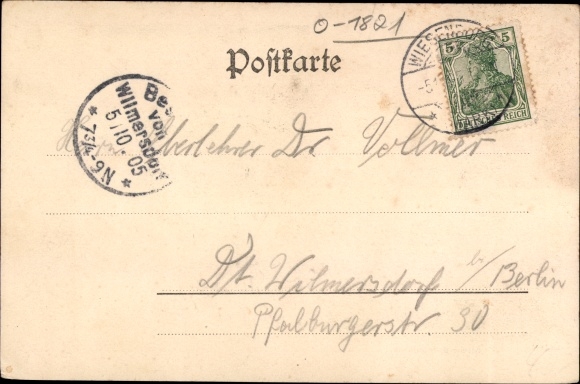 O-1821
Postkarte
5 5
REICH
Wilmersdorf
5/10 05
Herrn Oberlehrer Dr. Vollmer
Dt. Wilmersdorf b/Berlin
Pfalburgerstr. 30